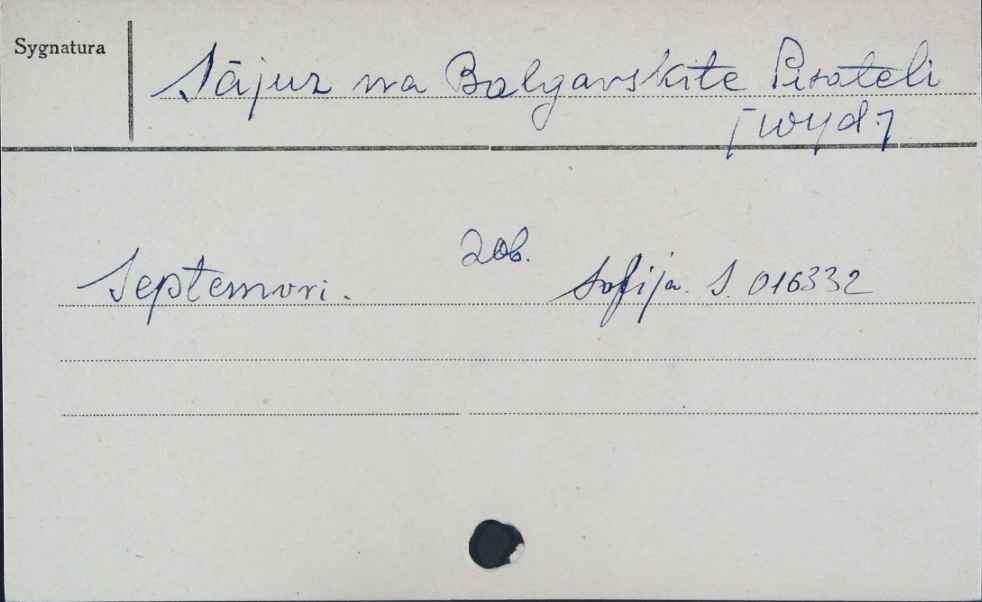 Sygnatura
Sājuz na Balgarskite Pisateli
[wyd.]
zob.
Septemvri. Sofija. S. 016332